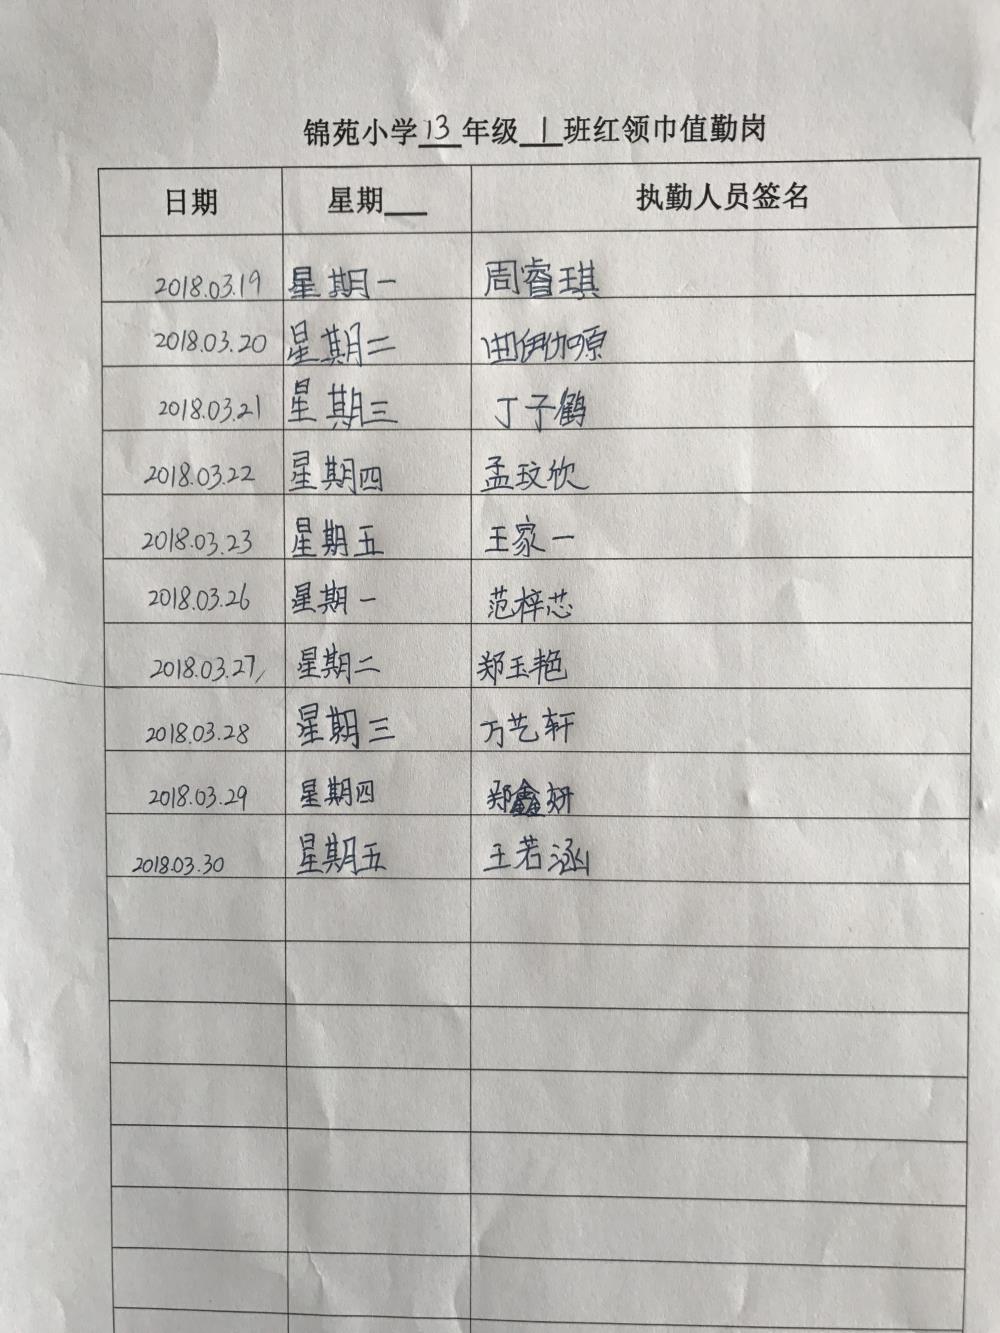 锦苑小学13年级1班红领巾值勤岗
日期 星期 执勤人员签名
2018.03.19 星期一 周睿琪
2018.03.20 星期二 曲伊伽嫄
2018.03.21 星期三 丁子鹤
2018.03.22 星期四 孟玟欣
2018.03.23 星期五 王家一
2018.03.26 星期一 范梓芯
2018.03.27 星期二 郑玉艳
2018.03.28 星期三 万艺轩
2018.03.29 星期四 郑鑫妍
2018.03.30 星期五 王若涵